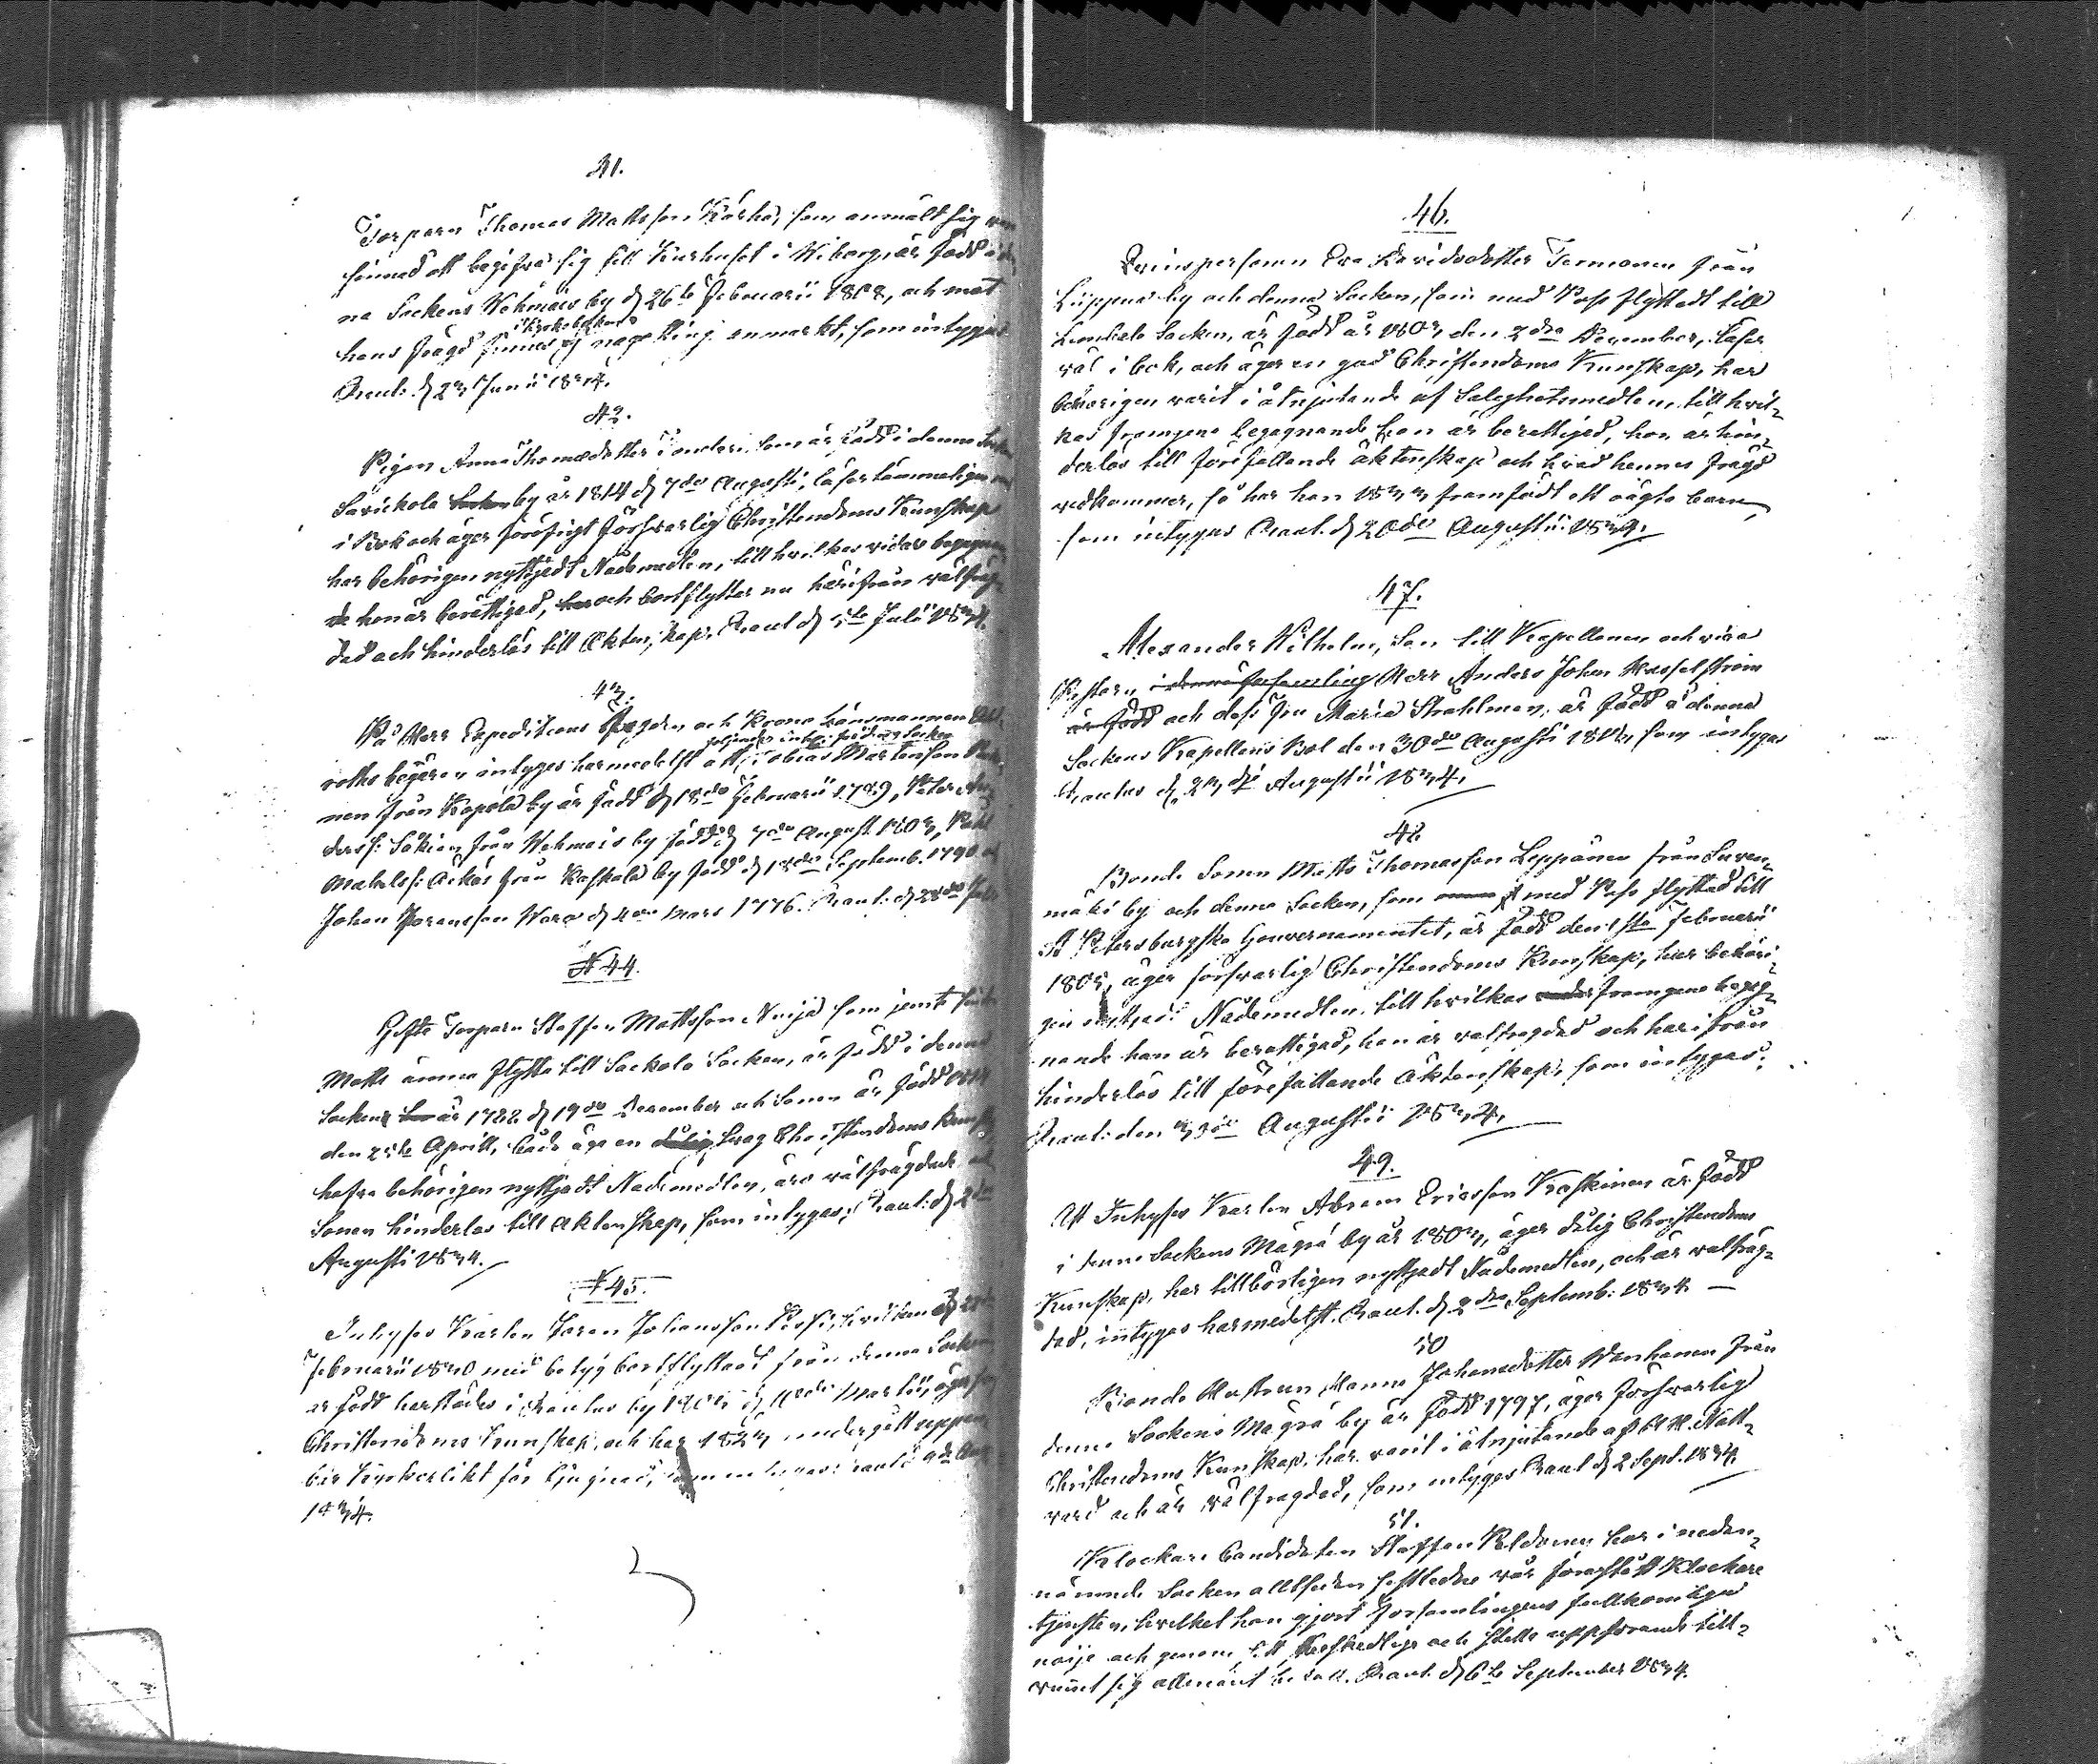 41.
Torparn Thomas Mattsson Kärhä, som anmält sig wara
sinnad att begifva sig till Kurhuset i Wiborg, är född i den
na Sockens Wehmais by d 26te Februarii 1808, och mot
i Kyrkoboken
hans frägd finnes ej någo ting anmärkt, som intygas
Raut. d 23 Junii 1834.
42.
Pigan Anna Thomædotter som är född i denna Socken
Savikola Socken by år 1814 d 7de Augusti, läser tämmeligen
i Bok och äger försvarlig Christendoms Kunskap
har behörigen nyttjadt Nådemedlen, till hvilkas vidare begagnan
de hon är berättigad, har och bortflyttar nu härifrån välfräg-
dad och hinderlös till Äktenskap. Raut d 5te Julii 1834.
43.
På Herr Expeditions Fogden och Krono Länsmannen
följande intyg från Socken
roths begäran intygas härmedelst att Tobias Mårtensson
nen från Kopola by är född d 18de Februarii 1789, Peter An
derss: Sökiö från Wehmais by född d 7de August. 1803, Påhl
Makelss: Äikäs från Haskola by född d 18de Septemb. 1790 och
Johan Göransson Wara d 4de Mars 1776. Raut. d 28de Julii
N 44.
Gifte Torparn Staffan Mattsson Nuija som jemte sin Son
Matts ämna flytta till Sackola Socken, är född i denna
Socken Son år 1788 d 19de December och Sonen är född
den 25te April, både äga en dålig svag Christendoms Kunskap
hafva behörigen nyttjadt Nådemedlen, äro välfrägdade och
Sonen hinderlös till Äktenskap, som intygas; Raut: d 2dra
Augusti 1834.
N 45.
Inhyses Karlen Göran Johansson hvilken d
Februarii 1830 med betyg bortflyttadt från denna Socken
är född härstädes i Rautus by d Martii, äger
Christendoms Kunskap, och har 1823 undergått uppen
bar Kyrkoplikt för tjufnad, som intygas: Raut d 9de Aug
1834.
46.
Qvinspersonen Eva Davidsdotter Termonen från
Lippus by och denna Socken, som med Pass flyttadt till
Lembala Socken, är född år 1803 den 2dra December, läser
väl i bok, och äger en god Christendoms Kunskap, har
behörigen varit i åtnjutande af Salighetsmedlen, till hvil-
kas framgena begagnande hon är berättigad, hon är hin-
derlös till förefallande äktenskap och hvad hennes frägd
vedkommer, så har hon 1833 framfödt ett oägta barn,
som intygas Raut. d 20de Augusti 1834.
47.
Alexander Wilhelm, Son till Kapellanen och vice
Pastorn i denna församling Herr Anders Johan Hasselström
är född och dess Fru Maria Strahlman, är född å denna
Sockens Kapellans Bol den 30de Augusti som intygas
Rautus d. 23de Augusti 1834.
48
Bonde Sonen Matts Thomasson Leppänen från Suven-
mäki by och denna Socken, som med Pass flyttad till
St Petersburgska Gouvernementet, är född den 1sta Februarii
1805, äger försvarlig Christendoms Kunskap, har behöri-
gen nyttjadt Nådemedlen, till hvilkas framgena begag-
nande han är berättigad, han är välfrägdad och härifrån
hinderlös till förefallande Äktenskap, som intygas;
Raut: den 30de Augusti 1834.
49.
Att Inhyses Karlen Abram Ericsson Kaskinen är född
i denna Sockens Mägrä by år 1803, äger dålig Christendoms
Kunskap, har tillbörligen nyttjadt Nådemedlen, och är välfräg-
dad, intygas härmedelst. Raut. d 2dra Septemb. 1834. —
50
Bonde Hustrun Hanna Johansdotter Wanhanen från
denna Sockens Mägrä by är född 1797, äger försvarlig
Christendoms Kunskap, har varit i åtnjutande af H. H. Natt-
vard och är välfrägdad, som intygas Raut d 2 Sept. 1834.
51.
Klockare Candidaten Staffan Paldanus har i neden-
nämnde Socken alltsedan sistledne vår förestått Klockare
tjensten, hvilket han gjort Församlingens fullkomliga
nöije och genom sitt beskedliga och stilla uppförande till-
vunnit sig allmänt behall. Raut. d 6te September 1834.